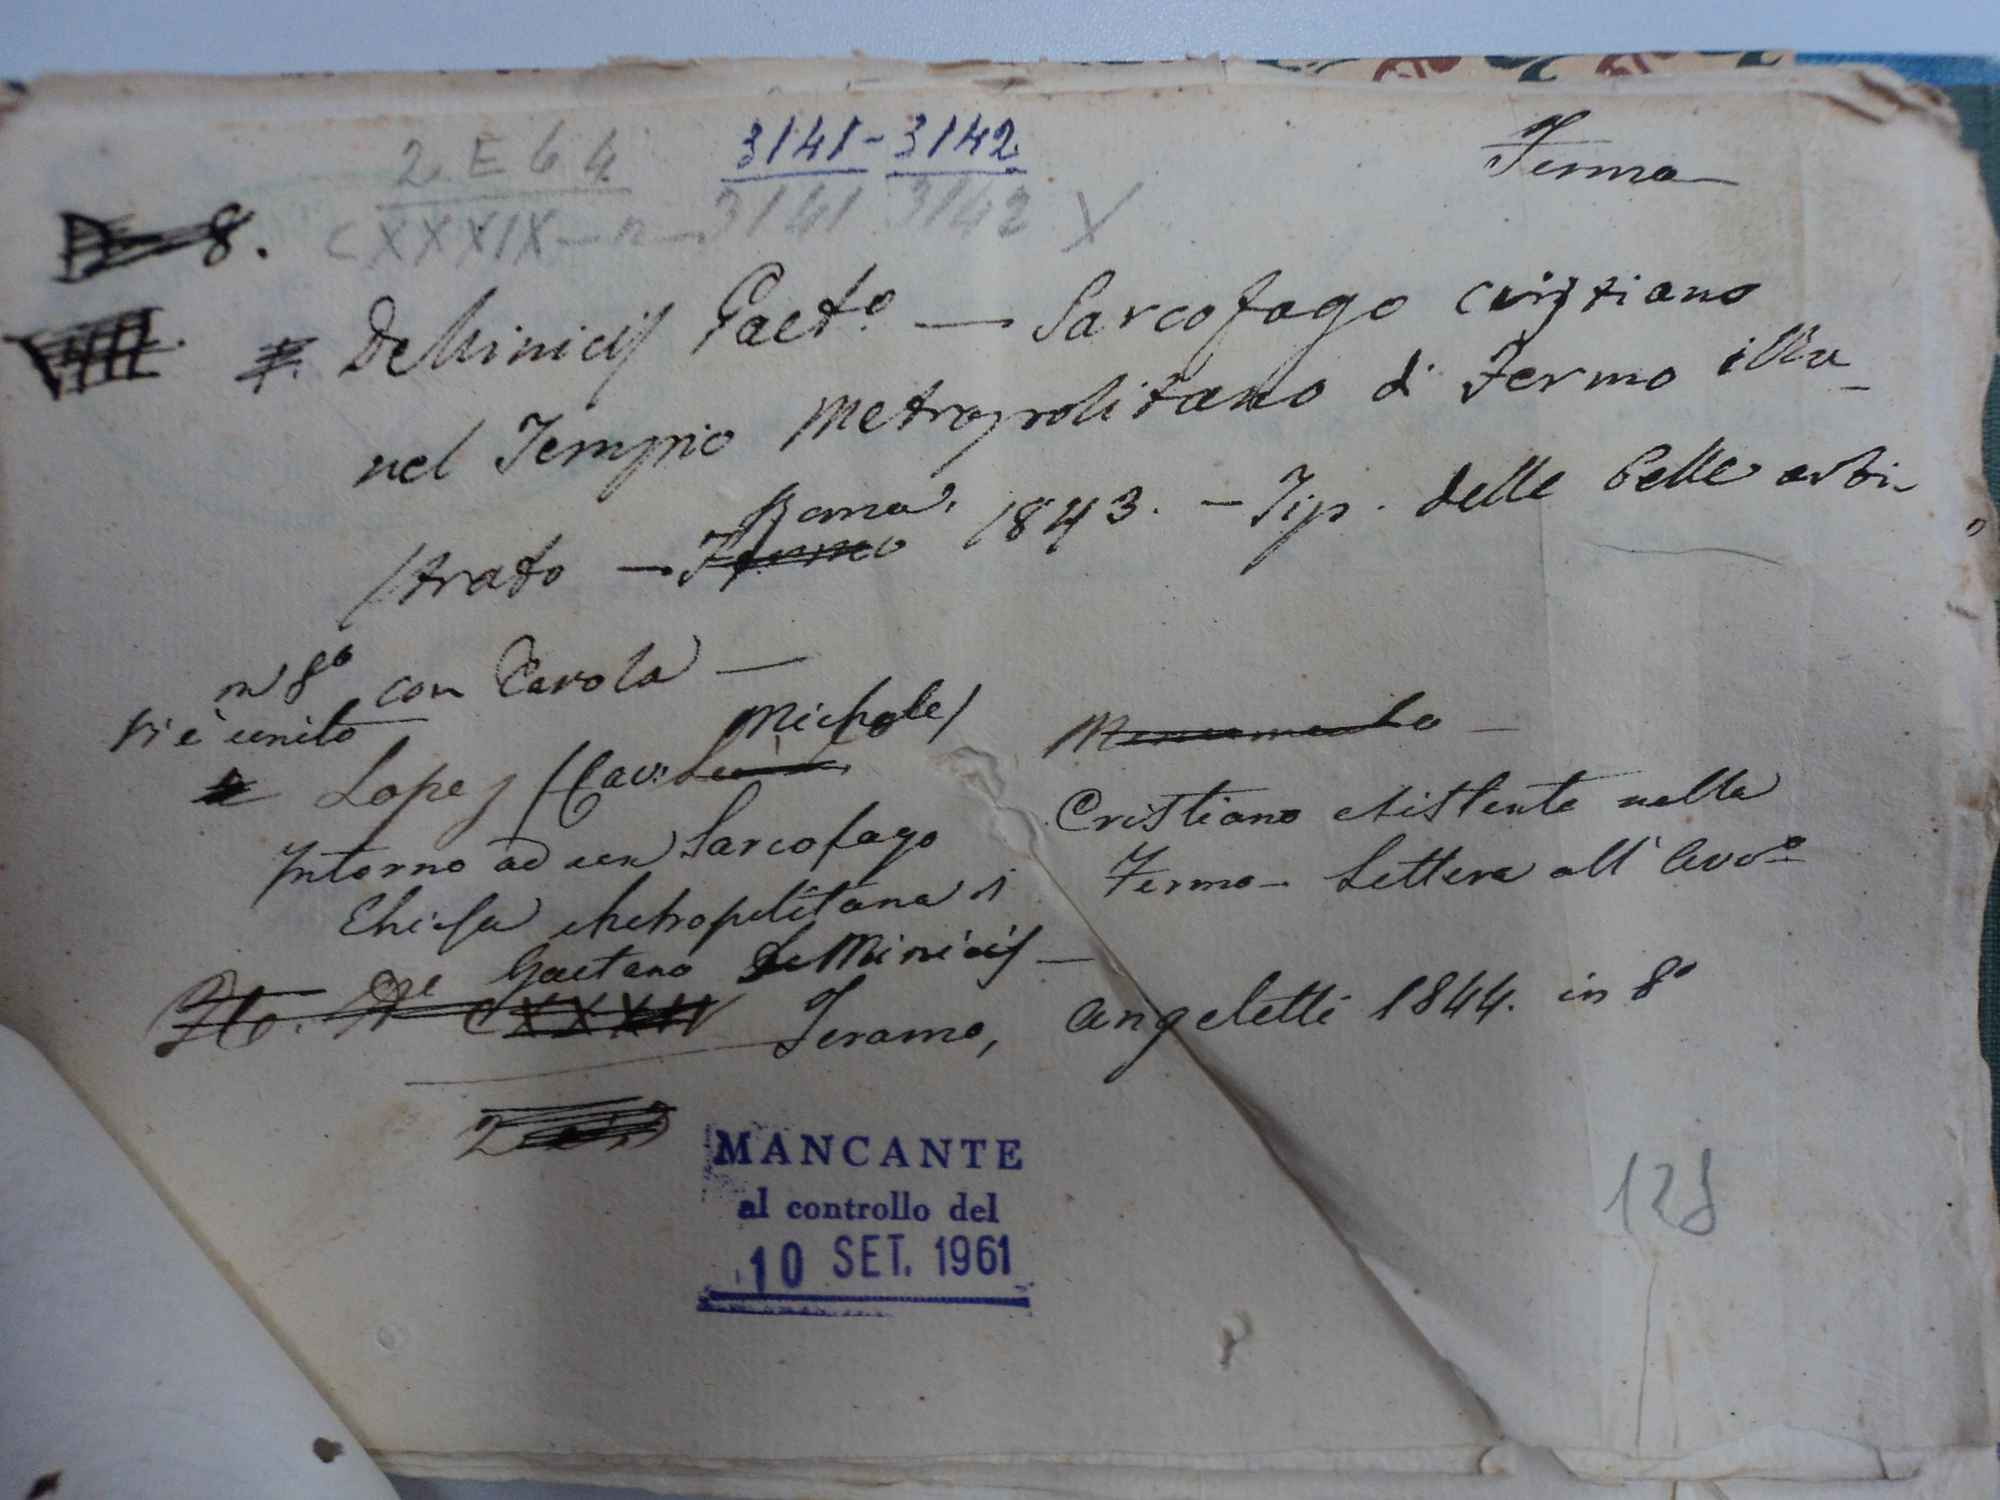 2 E 6 4
3141-3142
Fermo
8. CXXXIX - n - 3141 3142 X
DeMinicis Gaet.o — Sarcofago cristiano
nel Tempio Metropolitano di Fermo illu-
strato — Roma, Fermo 1843. - Tip. delle belle arti
in 8o con tavola —
Vi è unito
Lopez (Cav. Michele) Monumento -
Intorno ad un Sarcofago Cristiano esistente nella
Chiesa Metropolitana di Fermo - Lettera all'Avvo
Gaetano DeMinicis -
CXXXIV Teramo, Angeletti 1844. in 8o
MANCANTE
al controllo del
10 SET. 1961
128